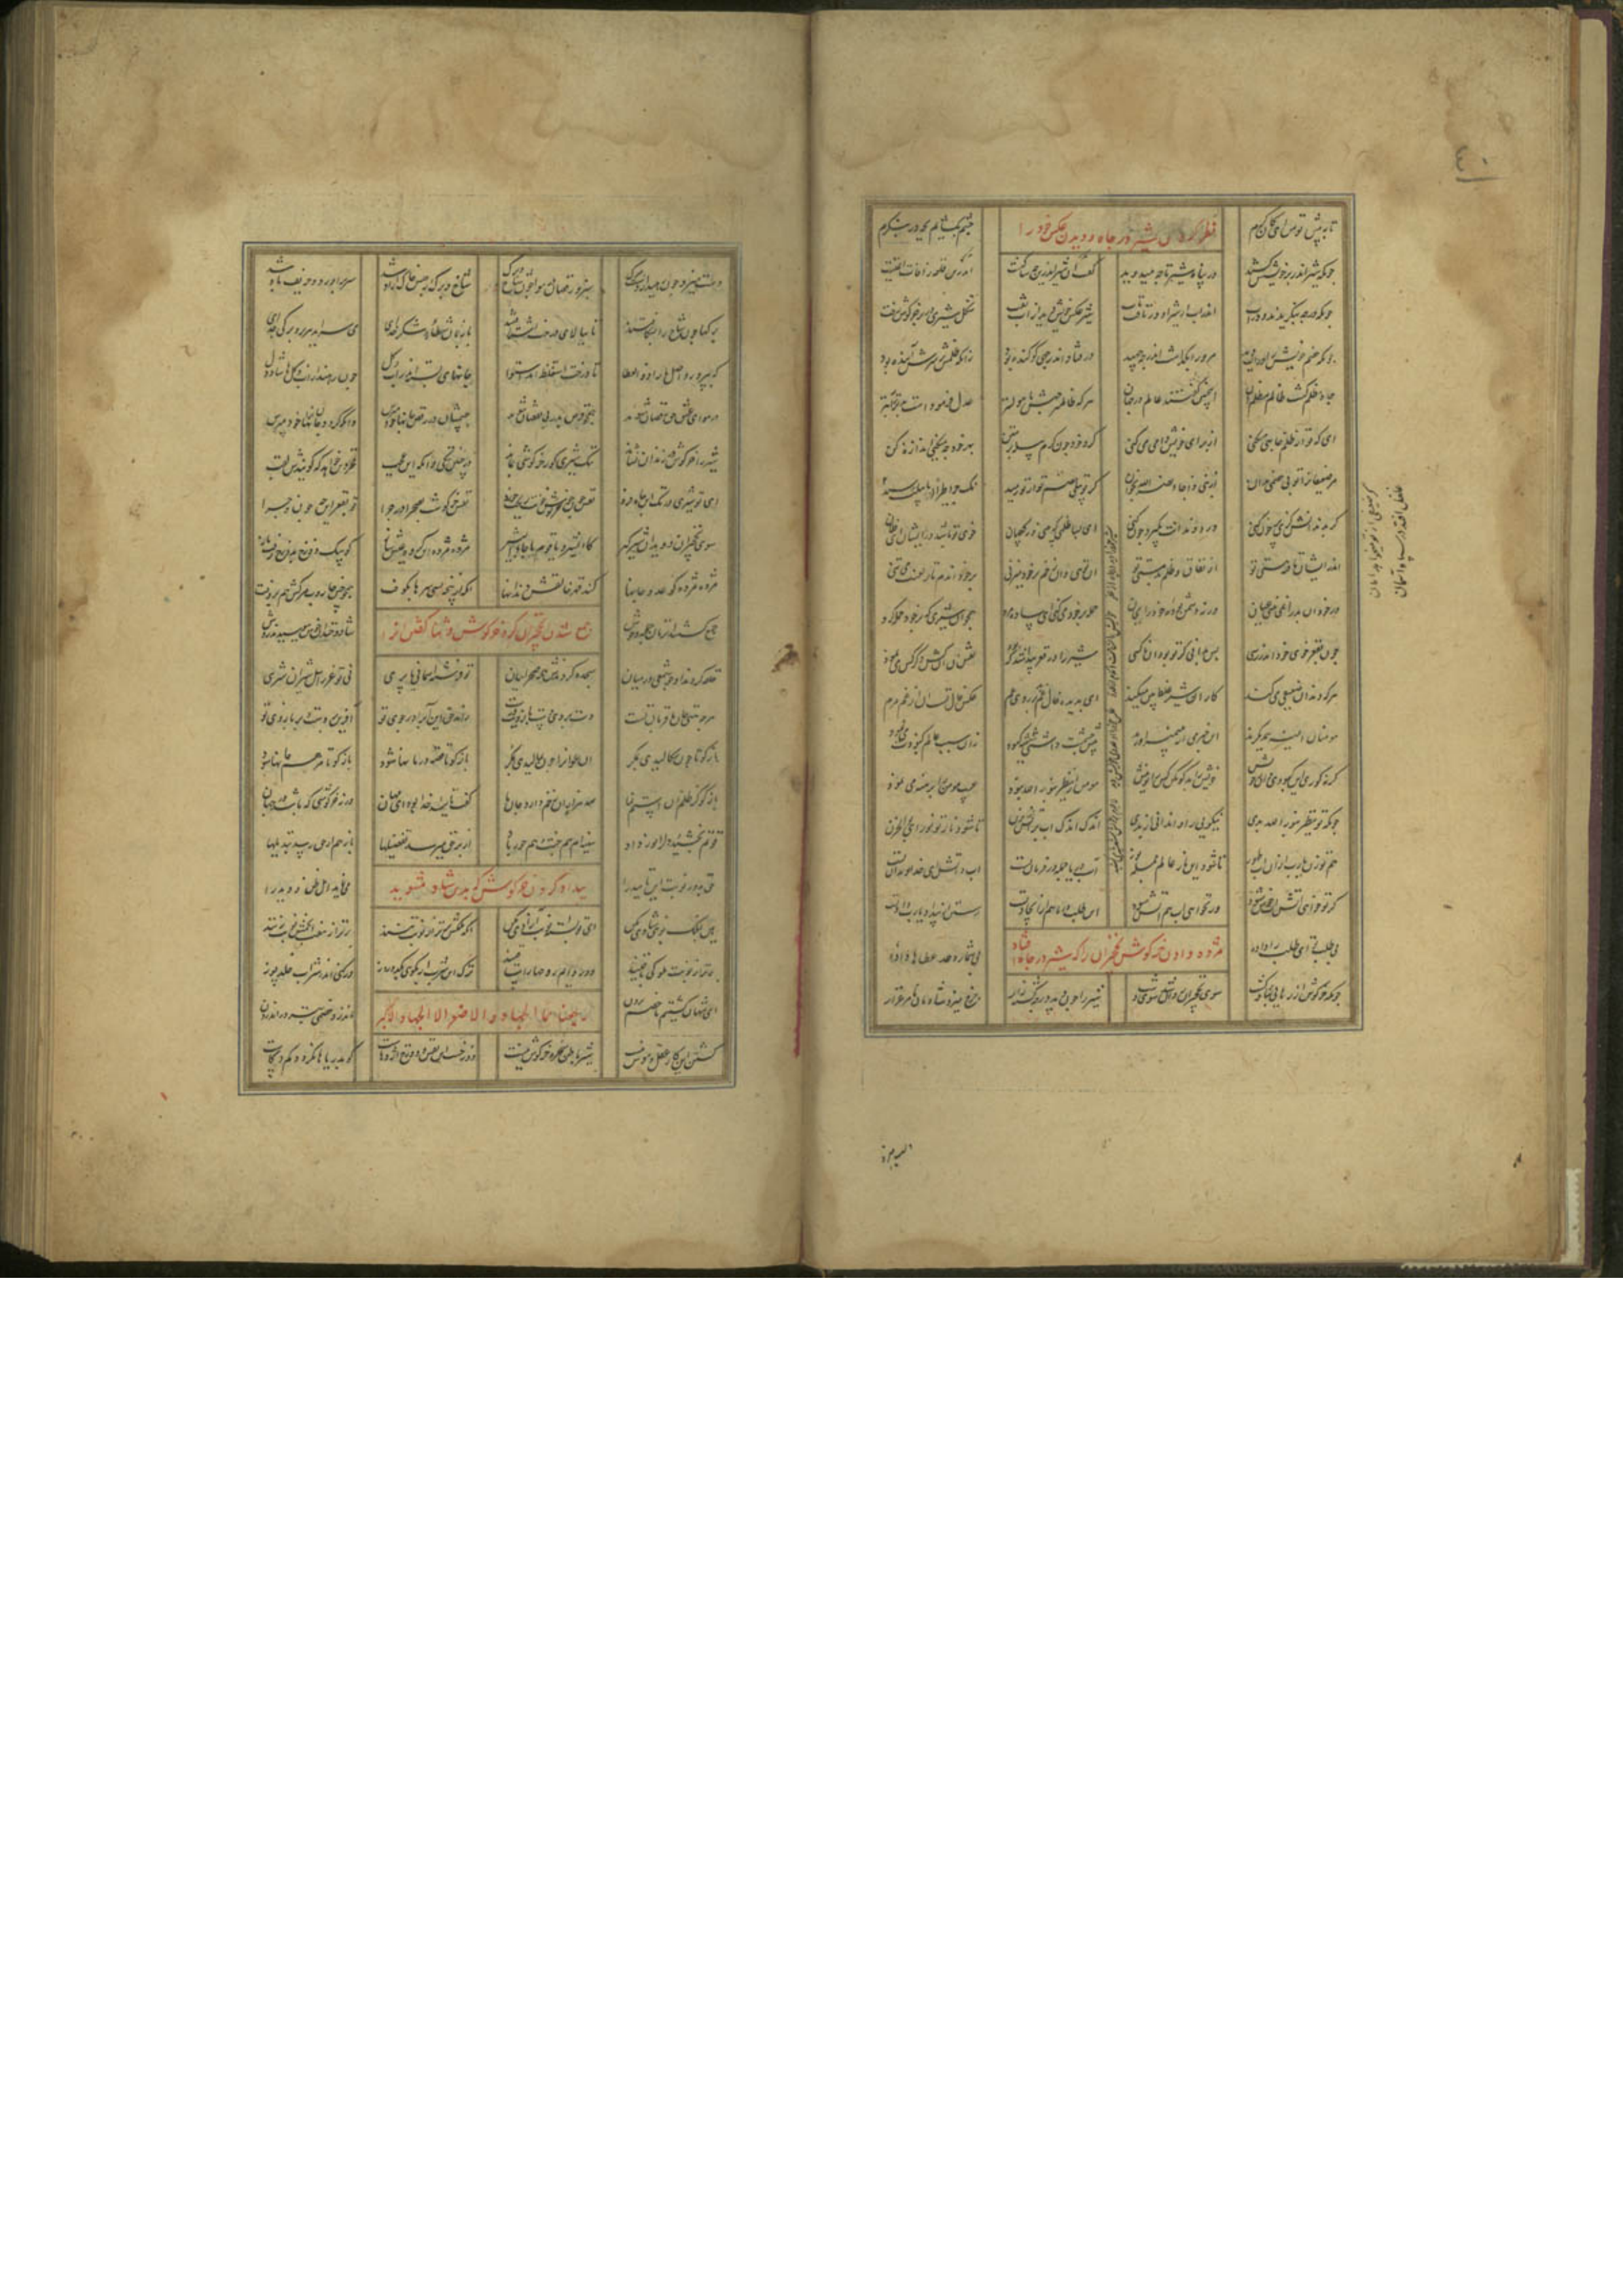 ٤٠
تا به پشت تو من ای کان کرم نظر کردن شیر در چاه و دیدن عکس خود را چشم بگشایم بچه در بنگرم
چونکه شیر اندر بر خویشش کشید در پناه شیر تا چه میدوید
چونکه در چه بنگریدند اندر آب اندر آب از شیر و او در تافت تاب شیر عکس خویش دید از آب تفت شکل شیری در برش خرگوش زفت
چونکه خصم خویش را در آب دید مر ورا بگذاشت اندر چه جهید در فتاد اندر چهی کو کنده بود زانکه ظلمش بر سرش آینده بود
چاه مظلم گشت ظلم ظالمان اینچنین گفتند عالمان هر که ظالمتر چهش با هولتر عدل فرموده است بتر را بتر
ای که تو از ظلم چاهی میکنی از برای خویش دامی می کنی گرد خود چون کرم پیله بر متن بهر خود چه میکنی اندازه کن
مر ضعیفانرا تو بی خصمی مدان از نبی اذا جاء نصر الله بخوان گر تو پیلی خصم تو از تو رمید نک جزا طیرا ابابیلت رسید
گر بدندانش گزی پر خون کنی درد دندانت بگیرد چون کنی ای بسا ظلمی که بینی در کسان خوی تو باشد در ایشان ای فلان
اندر ایشان تافته هستی تو از نفاق و ظلم و بدمستی تو آن توی و آن زخم بر خود میزنی بر خود آندم تار لعنت می تنی
در خود آن بد را نمی بینی عیان ورنه دشمن بودۀ خود را بجان حمله بر خود میکنی ای ساده مرد همچو آن شیری که بر خود حمله کرد
چون بقعر خوی خود اندر رسی پس بدانی کز تو بود آن ناکسی شیر را در قعر پیدا شد که بود نقش او آنکش دگر کس می نمود
هر که دندان ضعیفی میکند کار آن شیر غلط بین میکند ای بدیده خال بد بر روی عم عکس خال تست آن از عم مرم
مومنان آیینه یکدیگرند این خبر را از پیمبر آورند پیش چشمت داشتی شیشه کبود زان سبب عالم کبودت می نمود
گر نه کوری این کبودی دان ز خویش خویش را بد گو مگو کس را تو بیش مومن ار ینظر بنور الله نبود عیب مومن را برهنه چون نمود
چونکه تو ینظر بنار الله بدی نیکویی را وا ندانی از بدی اندک اندک آب بر آتش بزن تا شود نار تو نور ای بوالحزن
هم تو زن یا ربنا آن آب طهور تا شود این نار عالم جمله نور آب دریا جمله در فرمان تست آب و آتش ای خداوند آن تست
گر تو خواهی آتش آب خوش شود ور نخواهی آب هم آتش شود این طلب در ما هم از ایجاد تست رستن از بیداد یا رب داد تست
بی طلب تو این طلب را دادۀ مژده دادن خرگوش نخچیران را که شیر در چاه افتاد بی شمار و حد عطاها دادۀ
چونکه خرگوش از رهایی شاد گشت سوی نخچیران دوان شد تا بدشت شیر را چون دید در چه کشته زار چرخ میزد شادمان تا مرغزار
دست میزد چون رهید از دست مرگ سبز و رقصان در هوا چون شاخ و برگ شاخ و برگ از حبس خاک آزاد شد سر برآورد و حریف باد شد
برگها چون شاخ را بشکافتند تا ببالای درخت اشتافتند با زبان شطأه شکر خدای می سراید هر بر و برگی جدای
که بپرورد اصل ما را ذو العطا تا درخت استغلظ آمد و استوی جانهای بسته اندر آب و گل چون رهند از آب و گلها شاد دل
در هوای عشق حق رقصان شوند همچو قرص بدر بی نقصان شوند جسمشان در رقص و جانها خود مپرس وانکه گرد جان از آنها خود مپرس
شیر را خرگوش در زندان نشاند ننگ شیری کو ز خرگوشی بماند در چنان ننگی و آنگه این عجب فخر دین خواهد که گویندش لقب
ای تو شیری در تک این چاه فرد نقش چون خرگوش خونت ریخت و خورد نفس خرگوشت بصحرا در چرا تو بقعر این چه چون و چرا
سوی نخچیران دوید آن شیرگیر کابشروا یا قوم اذ جاء البشیر مژده مژده ای گروه عیش ساز کان سگ دوزخ بدوزخ رفت باز
مژده مژده کان عدو جانها کند قهر خالقش دندانها آنکه از پنجه بسی سرها بکوفت همچو خس جاروب مرگش هم بروفت
جمع شدن نخچیران گرد خرگوش و ثنا گفتن او را
جمع گشتند آن زمان جمله وحوش شاد و خندان
حلقه کردند او چو شمعی در میان سجده کردند همه صحراییان تو فرشته آسمانی یا پری نی تو عزرائیل شیران نری
هر چه هستی جان ما قربان تست دست بردی دست و بازویت درست راند حق این آب را در جوی تو آفرین بر دست و بر بازوی تو
باز گو تا چون سگالیدی بمکر آن عوان را چون بمالیدی بمکر باز گو تا قصه درمانها شود باز گو تا مرهم جانها شود
باز گو کز ظلم آن استم نما صد هزاران زخم دارد جان ما گفت تایید خدا بود ای مهان ورنه خرگوشی که باشد در جهان
قوتم بخشید و دل را نور داد نور دل مر دست و پا را زور داد از بر حق میرسد تفضیلها باز هم از حق رسد تبدیلها
حق بدور و نوبت این تایید را پند دادن خرگوش که بدین شاد مشوید می نماید اهل ظن و دید را
هین بملک نوبتی شادی مکن ای تو بسته نوبت آزادی مکن آنکه ملکش برتر از نوبت تنند برتر از هفت انجمش نوبت زنند
برتر از نوبت ملوک باقیند دور دایم روحها با ساقیند ترک این شرب ار بگویی یکدو روز در کنی اندر شراب خلد پوز
ای شهان کشتیم ما خصم برون رجعنا من الجهاد الاصغر الی الجهاد الاکبر ماند از و خصمی بتر در اندرون
کشتن این کار عقل و هوش نیست شیر باطن سخره خرگوش نیست دوزخست این نفس و دوزخ اژدهاست کو بدریاها نگردد کم و کاست